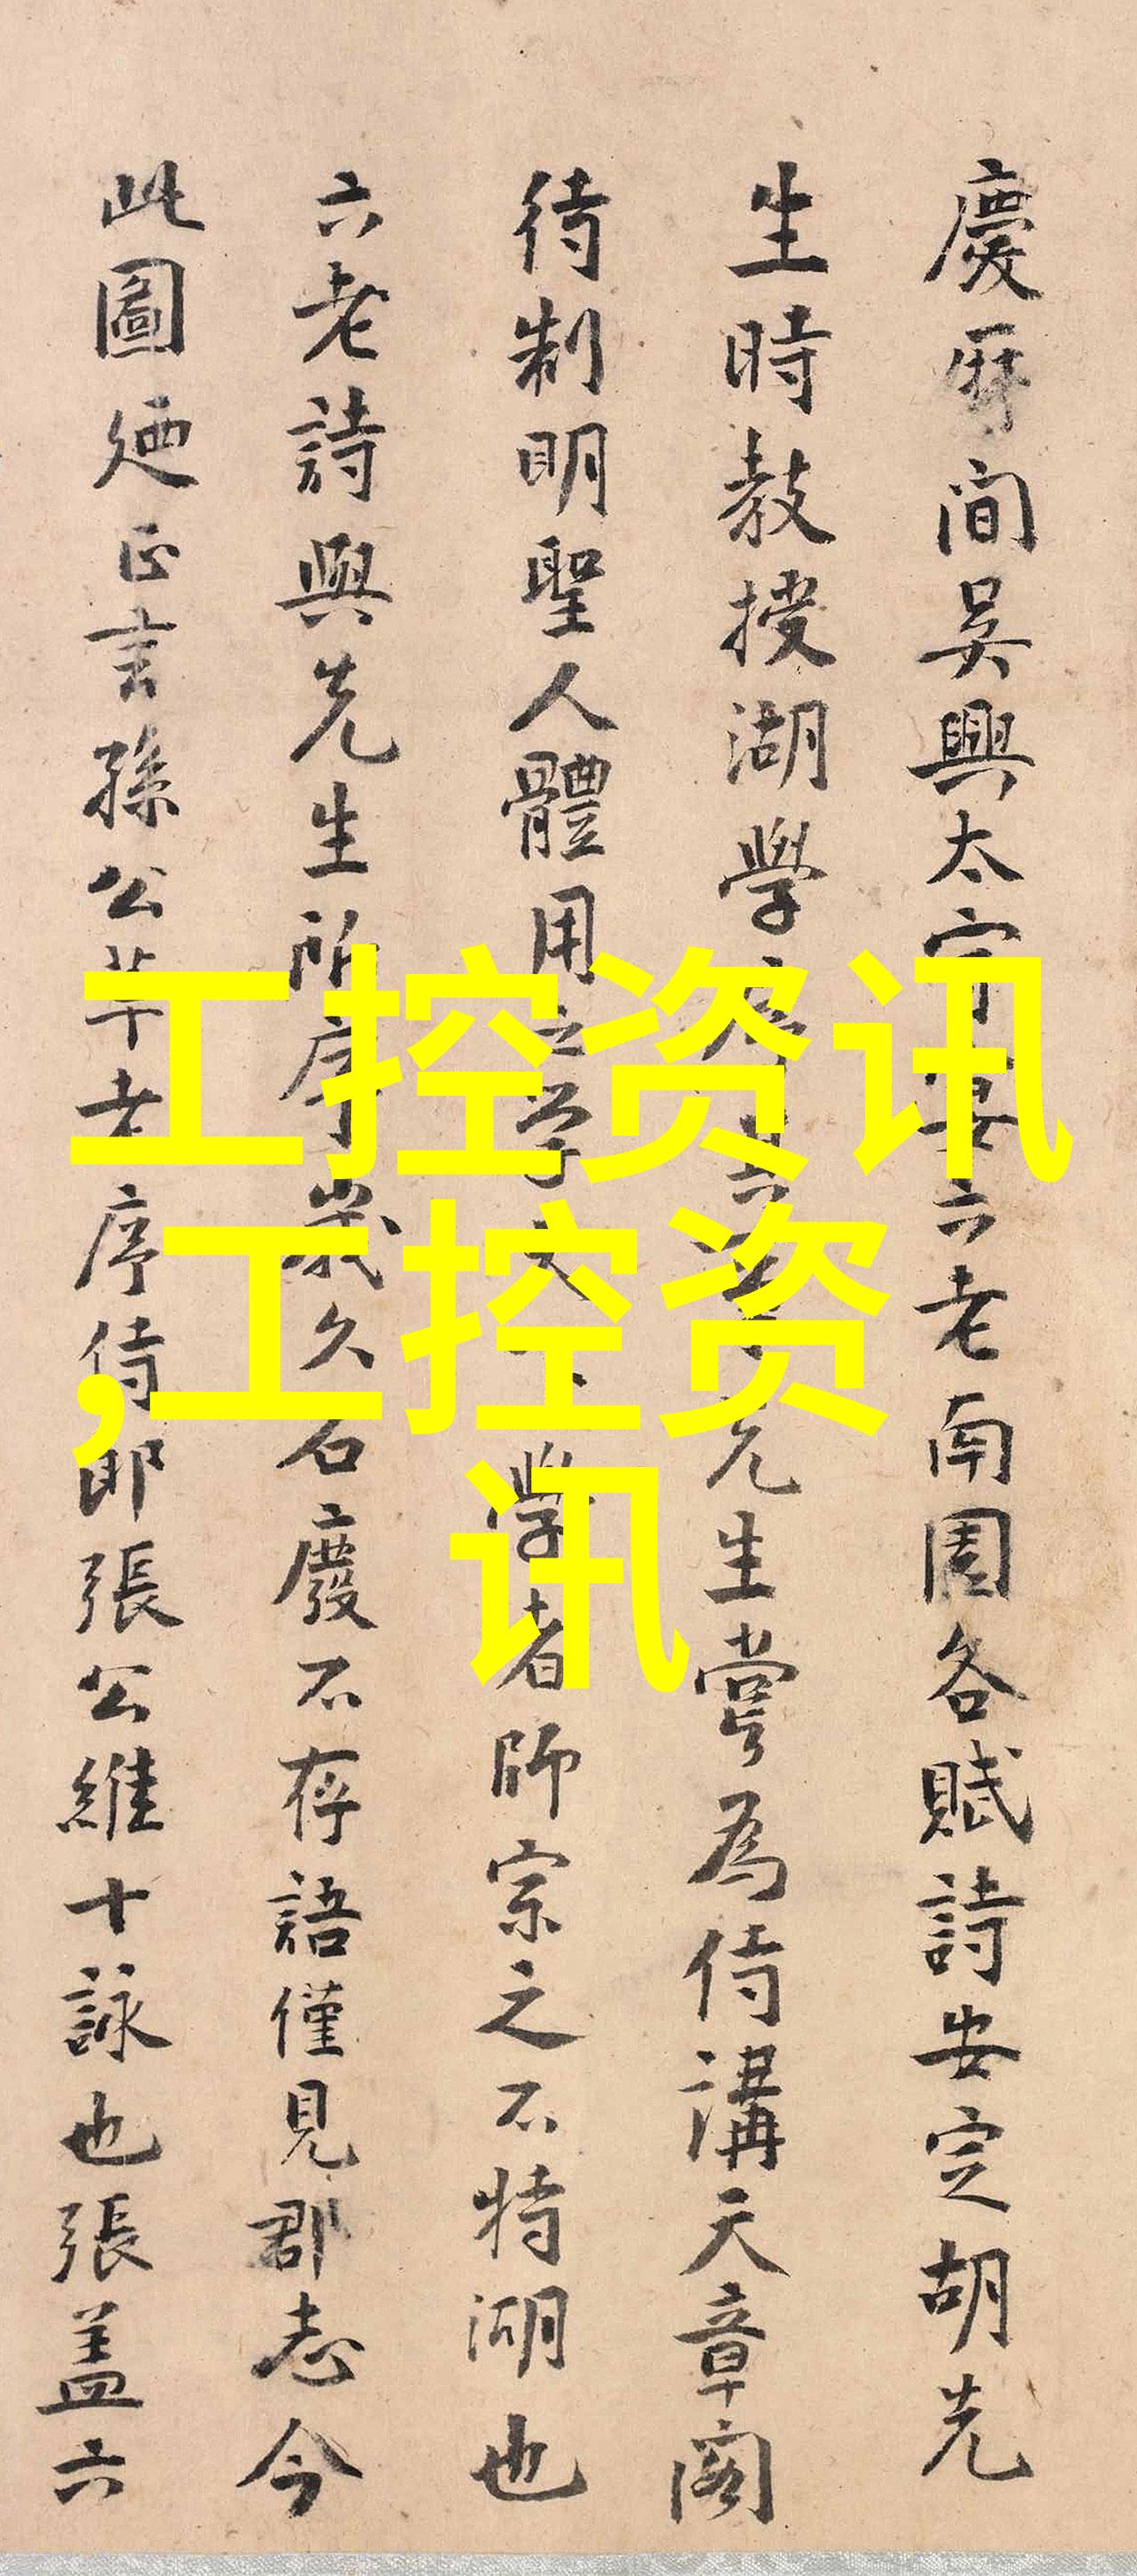 慶曆間吳興太守馬安六老南園各賦詩安定胡先
生時教授湖學序先生嘗為侍講天章閣
待制明聖人體用之學學者師宗之不特湖也
六老詩與先生所序歲久石廢不存語僅見郡志今
此圖廼正言孫公莘老序侍郎張公維十詠也張蓋六
工控资讯
,工控资
讯